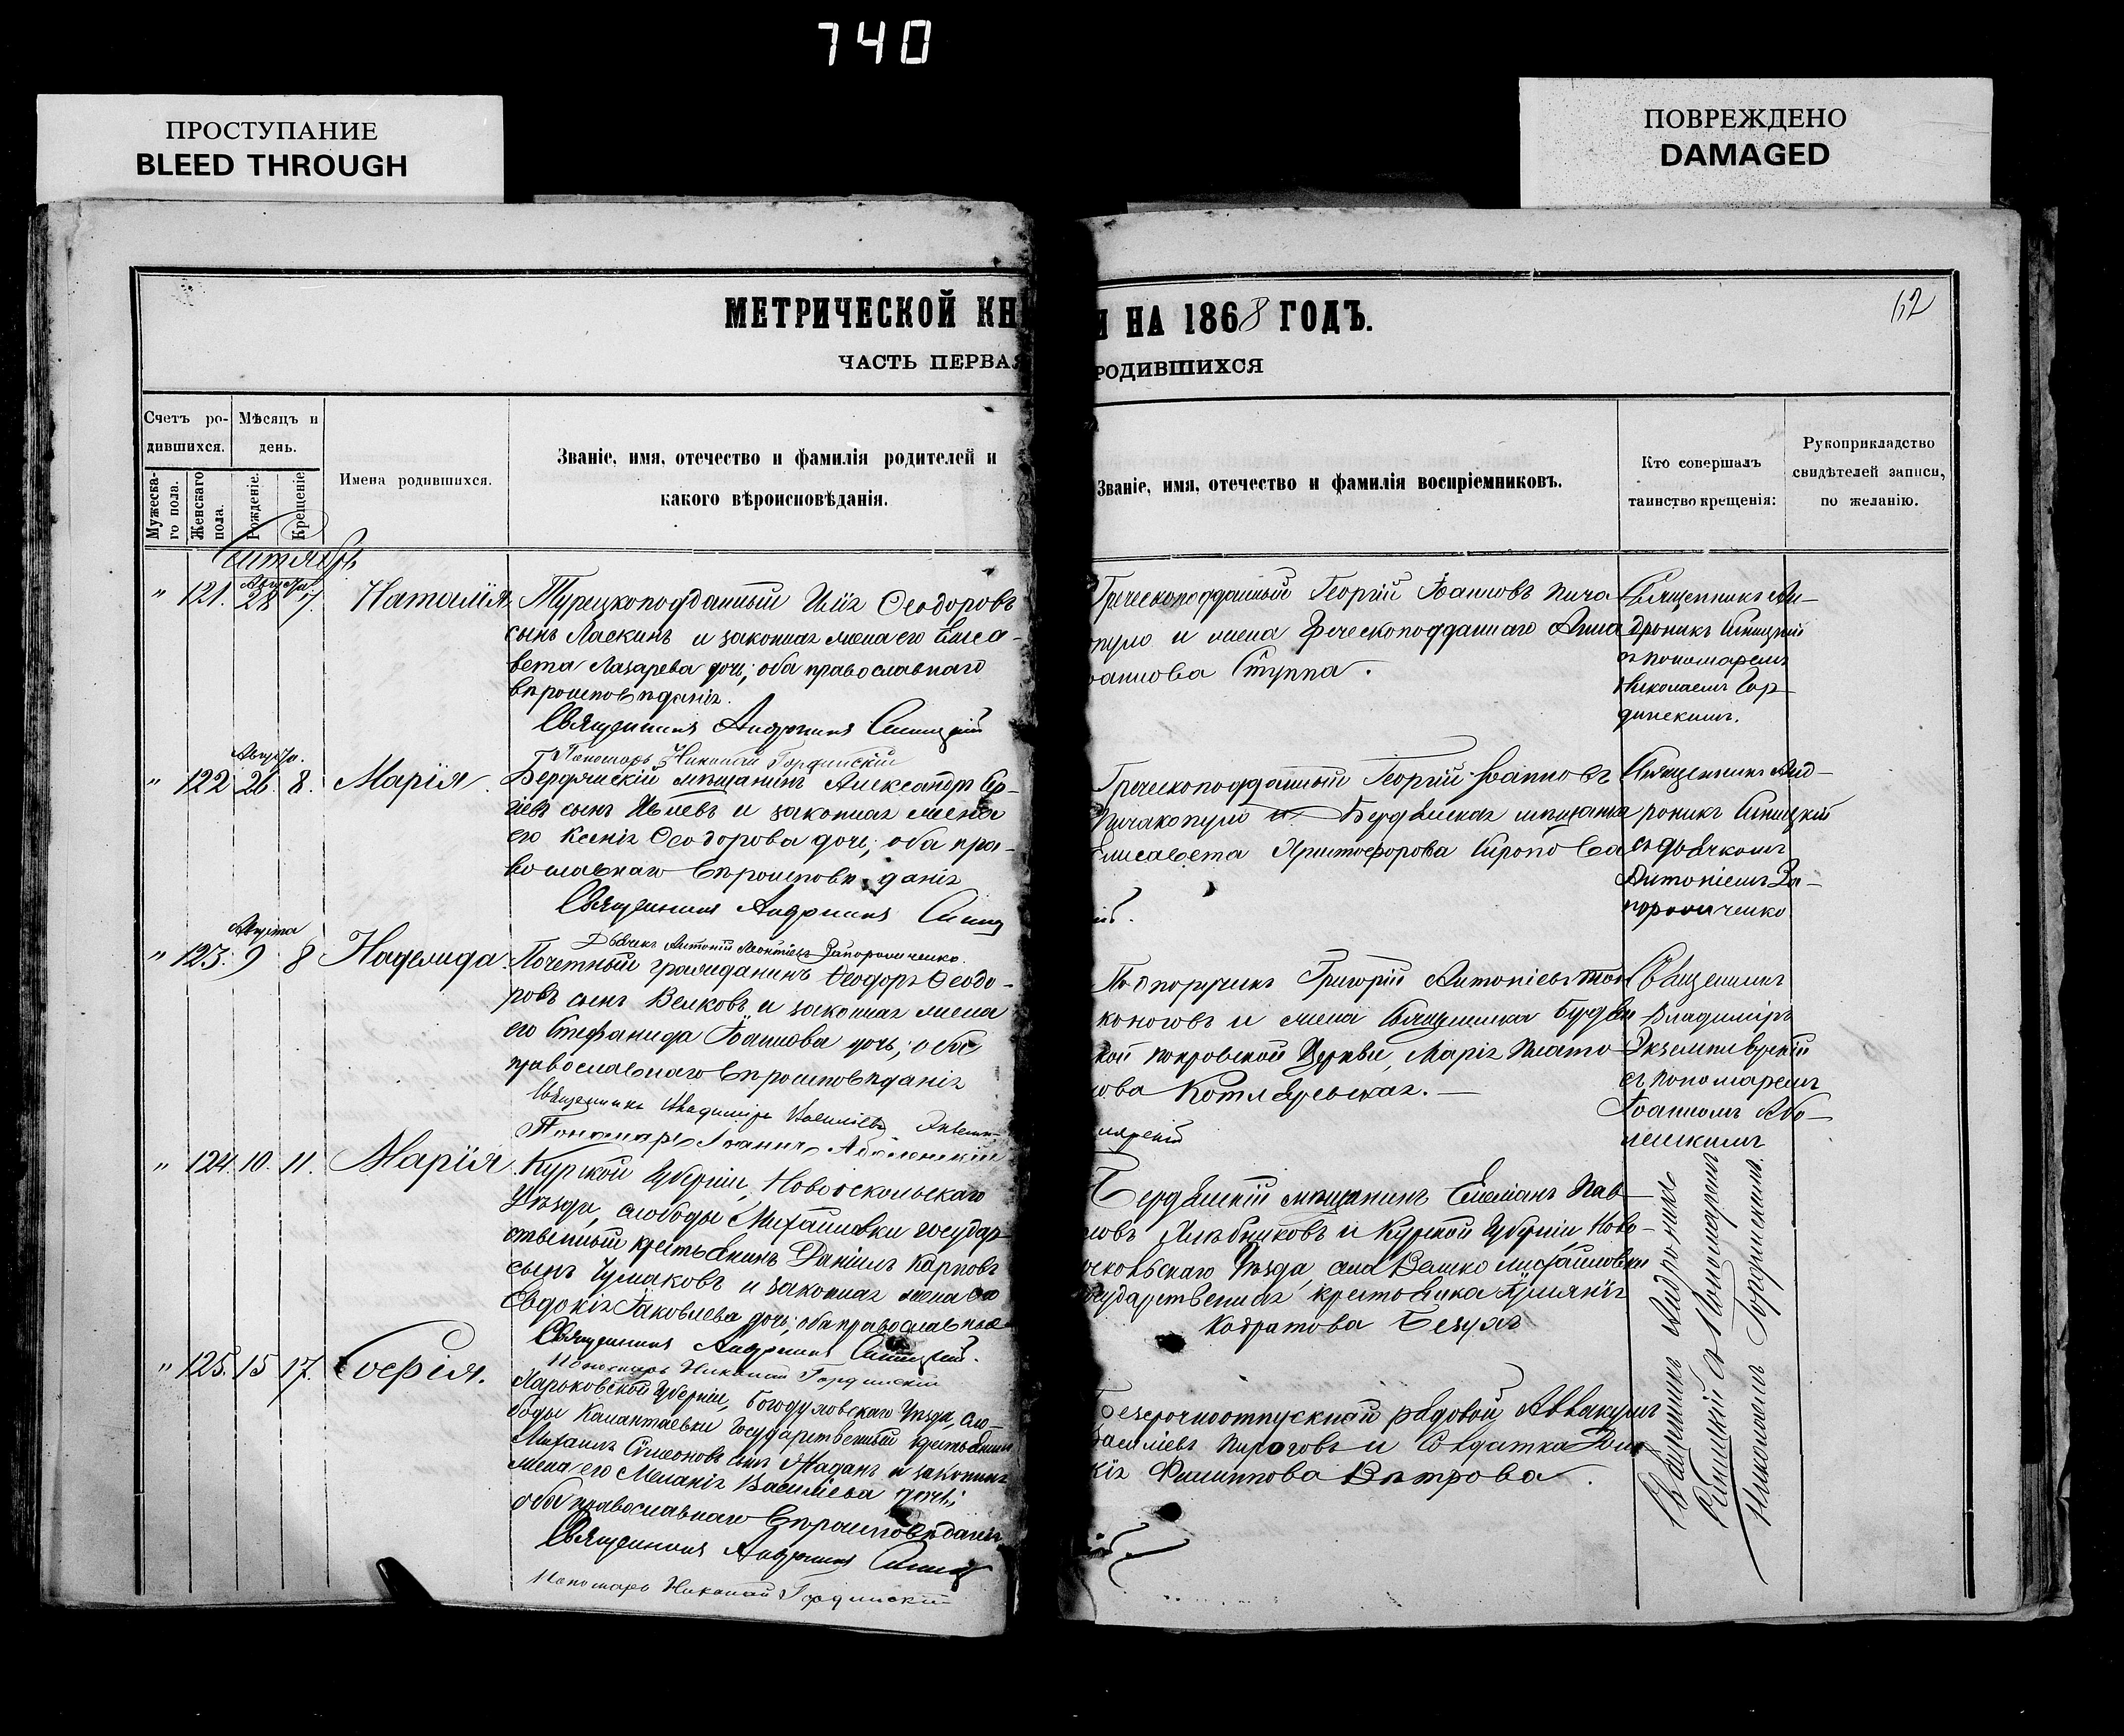 740
ПРОСТУПАНИЕ
BLEED THROUGH
ПОВРЕЖДЕНО
DAMAGED
МЕТРИЧЕСКОЙ КН
И НА 1868 ГОДЪ.
62
ЧАСТЬ ПЕРВАЯ
РОДИВШИХСЯ
Счетъ ро-
дившихся.
Мужеска-
го пола.
Женскаго
пола.
Мѣсяцъ и
день.
Рожденіе.
Крещеніе
Имена родившихся.
Званіе, имя, отечество и фамилія родителей и
какого вѣроисповѣданія.
Званіе, имя, отечество и фамилія воспріемниковъ.
Кто совершалъ
таинство крещенія:
Рукоприкладство
свидѣтелей записи,
по желанію.
Сентябрь
" 121. Августа 28 7. Наталія
Турецкоподданный Илія Ѳеодоровъ
сынъ Ласкинъ и законная жена его Елиса-
вета Лазарева дочь; оба православнаго
вѣроисповѣданія.
Священникъ Андроникъ Синицкій
Пономарь Николай Гординскій
Греческоподданный Георгій Іоанновъ Пича
пуло и жена Греческоподданнаго Анна
оаннова Ступпа.
Священникъ Ан-
дроникъ Синицкій
съ пономаремъ
Николаемъ Гор-
динскимъ.
" 122 Августа. 26 8. Марія
Бердянскій мѣщанинъ Александръ
сынъ и законная жена
его Ксенія Ѳеодорова дочь; оба пра-
вославнаго вѣроисповѣданія
Священникъ Андроникъ Синиц
Дьячекъ Антоній Запорожченко.
Греческоподданный Георгій Іоанновъ
Пичакопуло и Бердянская мѣщанка
Елисавета Христофорова
ій.
Священникъ Анд-
роникъ Синицкій
съ дьячкомъ
Антоніемъ За-
порожченко
" 123. Августа 9 8 Надежда
Почетный гражданинъ Ѳеодоръ Ѳеодо-
ровъ сынъ Волковъ и законная жена
его Стефанида Іоаннова дочь; оба
православнаго вѣроисповѣданія
Священникъ Владиміръ Васильевъ
Пономарь Іоаннъ Аболенскій
Подпоручикъ Григорій Антоніевъ
коноговъ и жена Священника Бердян
кой Покровской Церкви, Марія Плато-
нова Котляревская.
лярскій
Священникъ
Владиміръ
Экземплярскій
съ пономаремъ
Іоанномъ Або-
ленскимъ
" 124. 10. 11. Марія
Курской Губерніи, Новооскольскаго
Уѣзда, слободы Михайловки государ-
ственный крестьянинъ Даніилъ Карповъ
сынъ Чумаковъ и законная жена его
Евдокія Іаковлева дочь; оба православные
Священникъ Андроникъ Синицкій.
Пономарь Николай Гординскій
Бердянскій мѣщанинъ Емеліанъ Пав-
ловъ Хлѣбниковъ и Курской Губерніи, Ново-
оскольскаго Уѣзда, села Велико Михайловки
государственная крестьянка
Кодратова
Священникъ Андроникъ
Синицкій съ Пономаремъ
Николаемъ Гординскимъ.
" 125. 15 17. Софія.
Харьковской Губерніи, Богодуховскаго Уѣзда, сло-
боды Каплантаевки Государственный крестьянинъ
Михаилъ Симеоновъ сынъ Жаданъ и законная
жена его Меланія Васильева дочь;
оба православнаго вѣроисповѣданія
Священникъ Андроникъ Синиц
Пономарь Николай Гординскій
Безсрочноотпускной рядовой Аввакумъ
Васильевъ Пироговъ и Солдатка
кія Филиппова Вѣтрова.